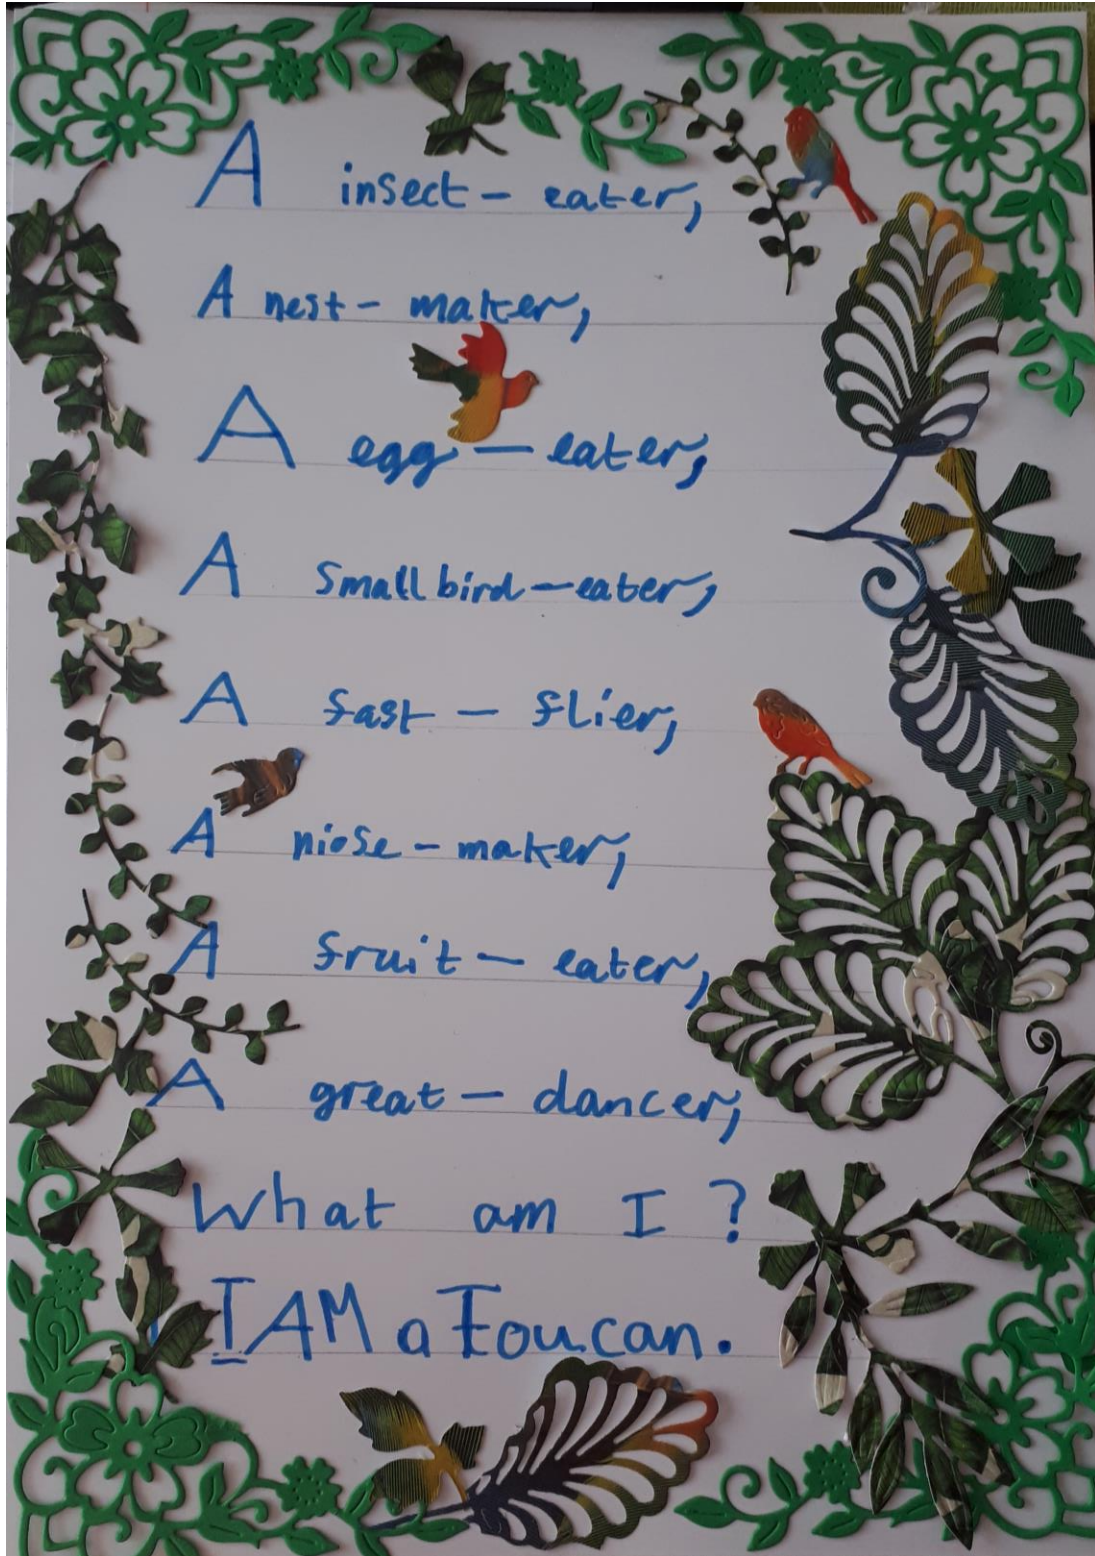 A insect - eater,
A nest - maker,
A egg - eater,
A small bird - eater,
A fast - flier,
A niose - maker,
A fruit - eater,
A great - dancer,
What am I ?
I AM a Toucan.